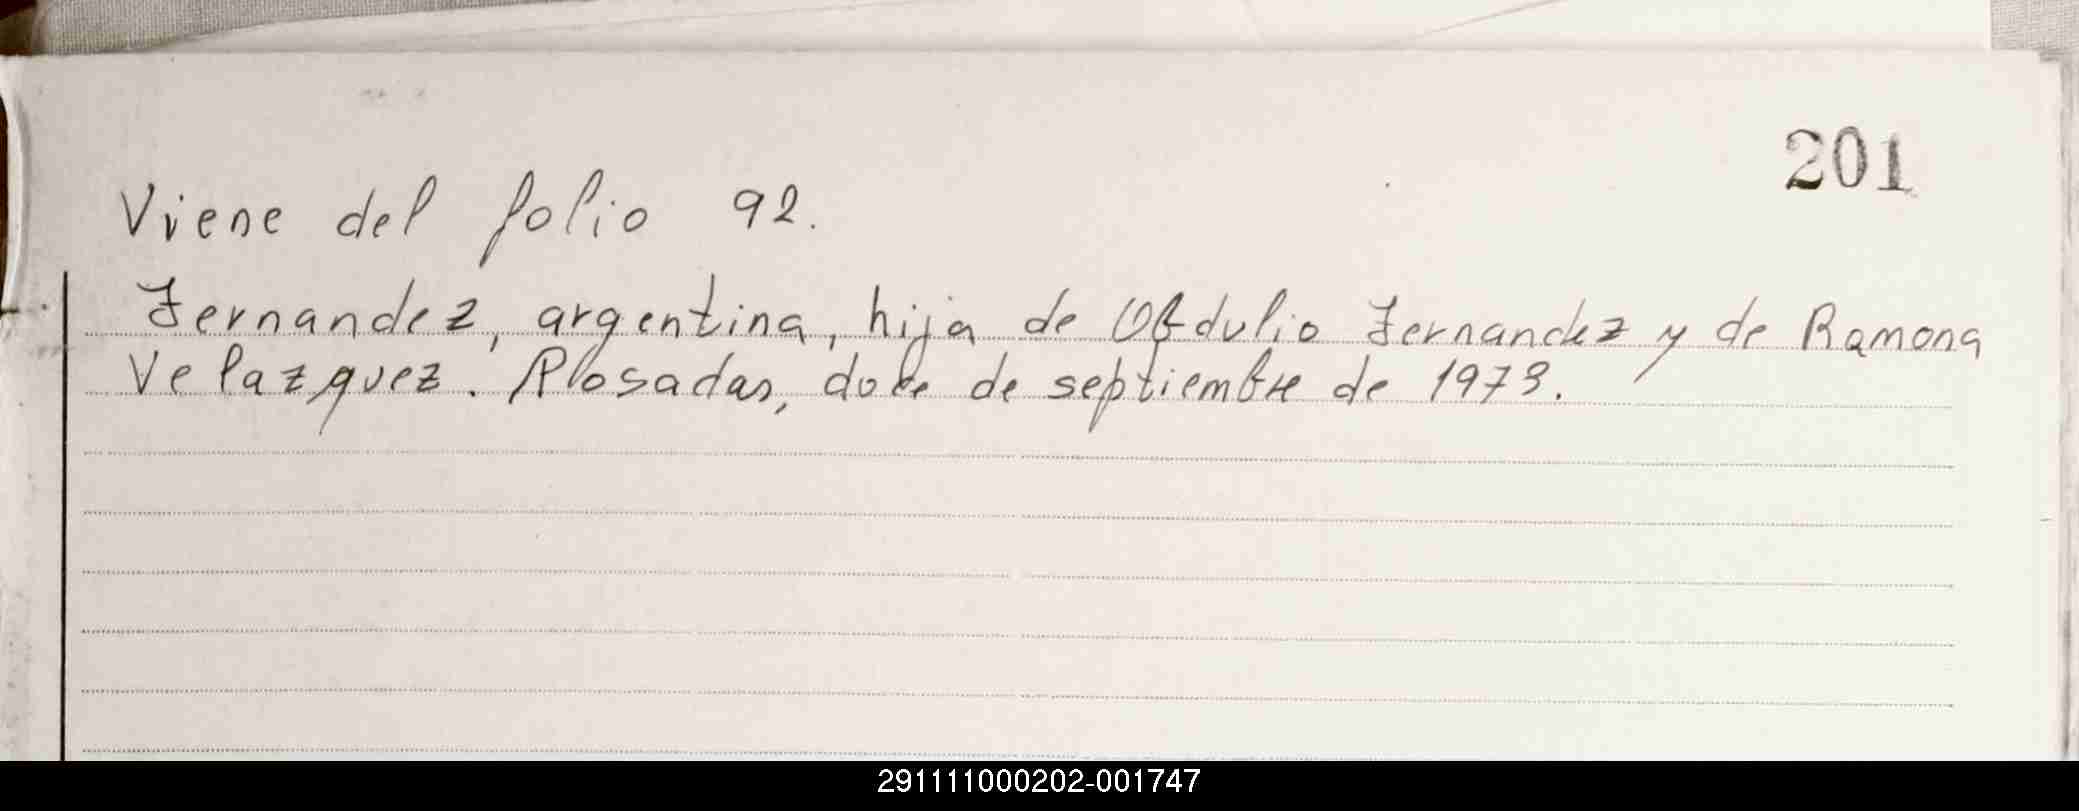 201
Viene del folio 92.
Fernandez, argentina, hija de Obdulio Fernandez y de Ramona
Velazquez. Posadas, doce de septiembre de 1973.
291111000202-001747